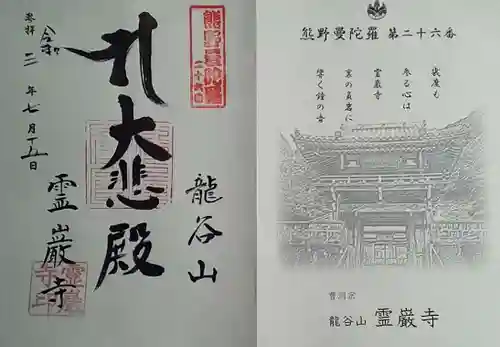 熊野曼陀羅
二十六番
龍谷山
大悲殿
奉拝
令和三年七月十五日
霊巖寺
熊野曼陀羅 第二十六番
幾度も
参る心は
霊巌寺
響く鐘の音
曹洞宗
龍谷山 霊巌寺